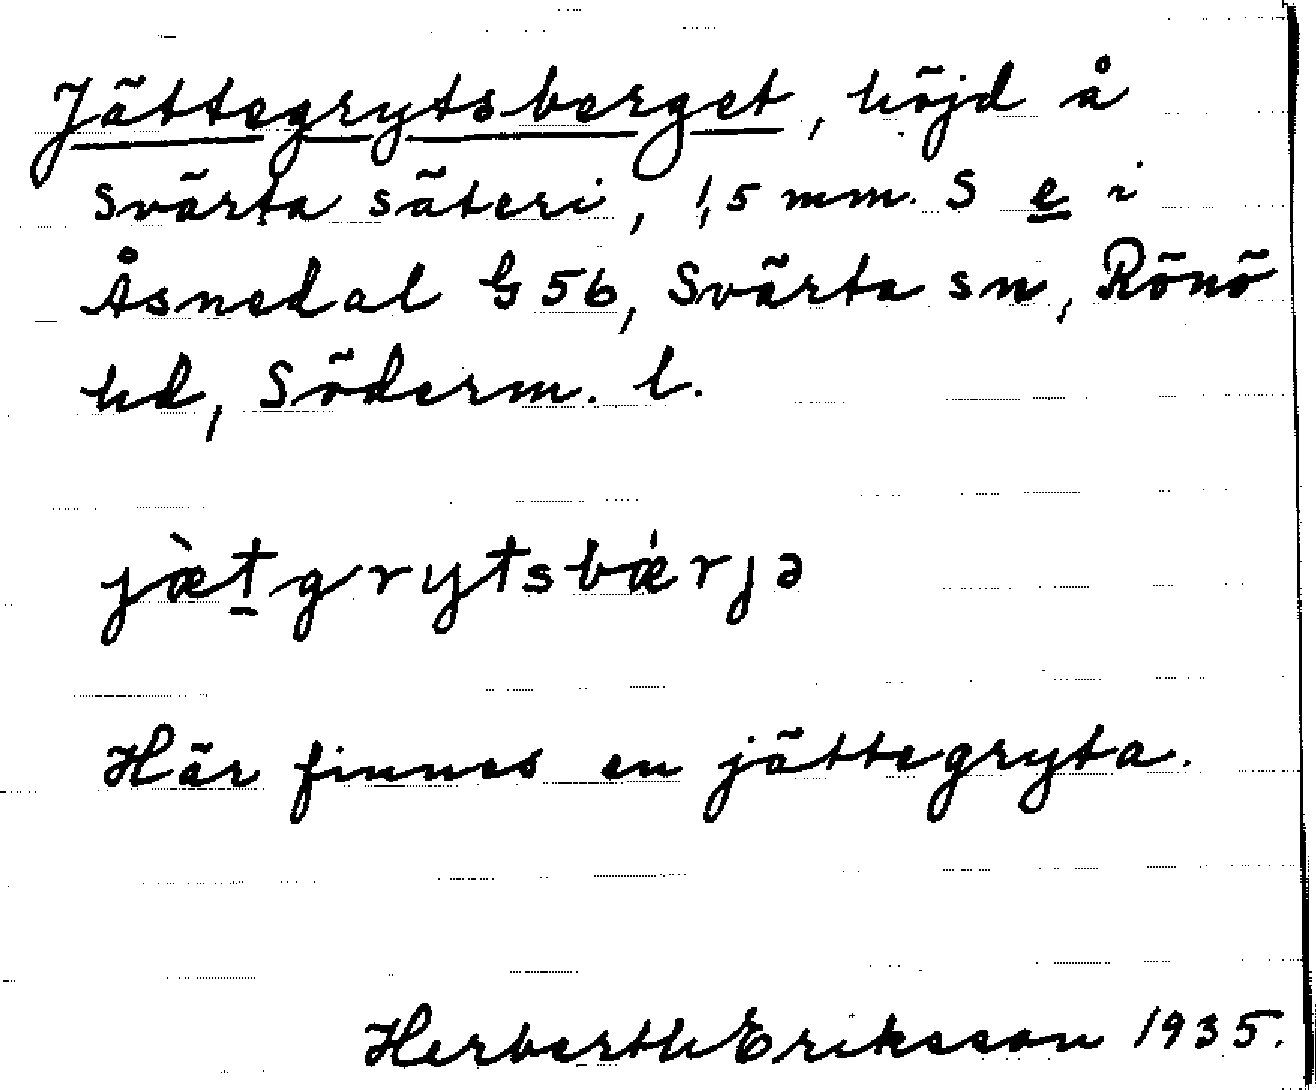 Jättegrytsberget, höjd å
Svärta säteri, 1,5 mm. S e i
Åsnedal G 56, Svärta sn, Rönö
hd, Söderm. l.
jæ̀t̠grytsbǽrjə
Här finnes en jättegryta.
Herberth Eriksson 1935.